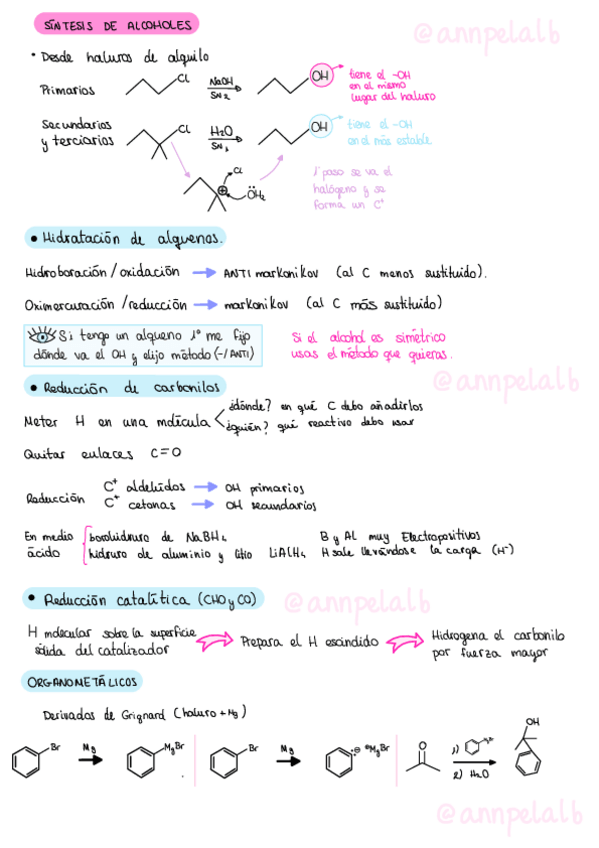 SÍNTESIS DE ALCOHOLES
@annpelalb
• Desde haluros de alquilo
Primarios
Cl
NaOH
SN2
OH
tiene el -OH
en el mismo
lugar del haluro
Secundarios
y terciarios
Cl
H2O
SN1
OH
tiene el -OH
en el más estable
Cl
+
ÖH2
1º paso se va el
halógeno y se
forma un C+
• Hidratación de alquenos.
Hidroboración/oxidación → ANTI markonikov (al C menos sustituido).
Oximercuración/reducción → markonikov (al C más sustituido)
Si tengo un alqueno 1º me fijo
dónde va el OH y elijo método (-/ANTI)
Si el alcohol es simétrico
usas el método que quieras.
@annpelalb
• Reducción de carbonilos
Meter H en una molécula
¿dónde? en qué C debo añadirlos
¿quién? qué reactivo debo usar
Quitar enlaces C=O
Reducción
C+ aldehídos → OH primarios
C+ cetonas → OH secundarios
En medio
ácido
borohidruro de NaBH4
hidruro de aluminio y litio LiAlH4
B y Al muy Electropositivos
H sale llevándose la carga (H-)
• Reducción catalítica (CHO y CO)
@annpelalb
H molecular sobre la superficie
sólida del catalizador
Prepara el H escindido
Hidrogena el carbonilo
por fuerza mayor
ORGANOMETÁLICOS
Derivados de Grignard (haluro + Mg)
Br
Mg
MgBr
Br
Mg
MgBr
O
1)
2) H2O
OH
@annpelalb